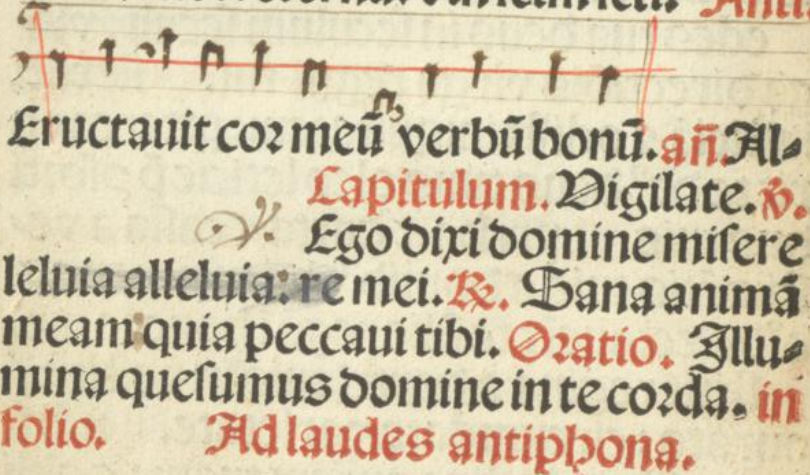 Eructauit cor meū verbū bonū. añ. Al-
Capitulum. Vigilate. ℣.
℣. Ego dixi domine misere
leluia alleluia: re mei. ℟. Sana animā
meam quia peccaui tibi. Oratio. Illu-
mina quesumus domine in te corda. in
folio. Ad laudes antiphona.